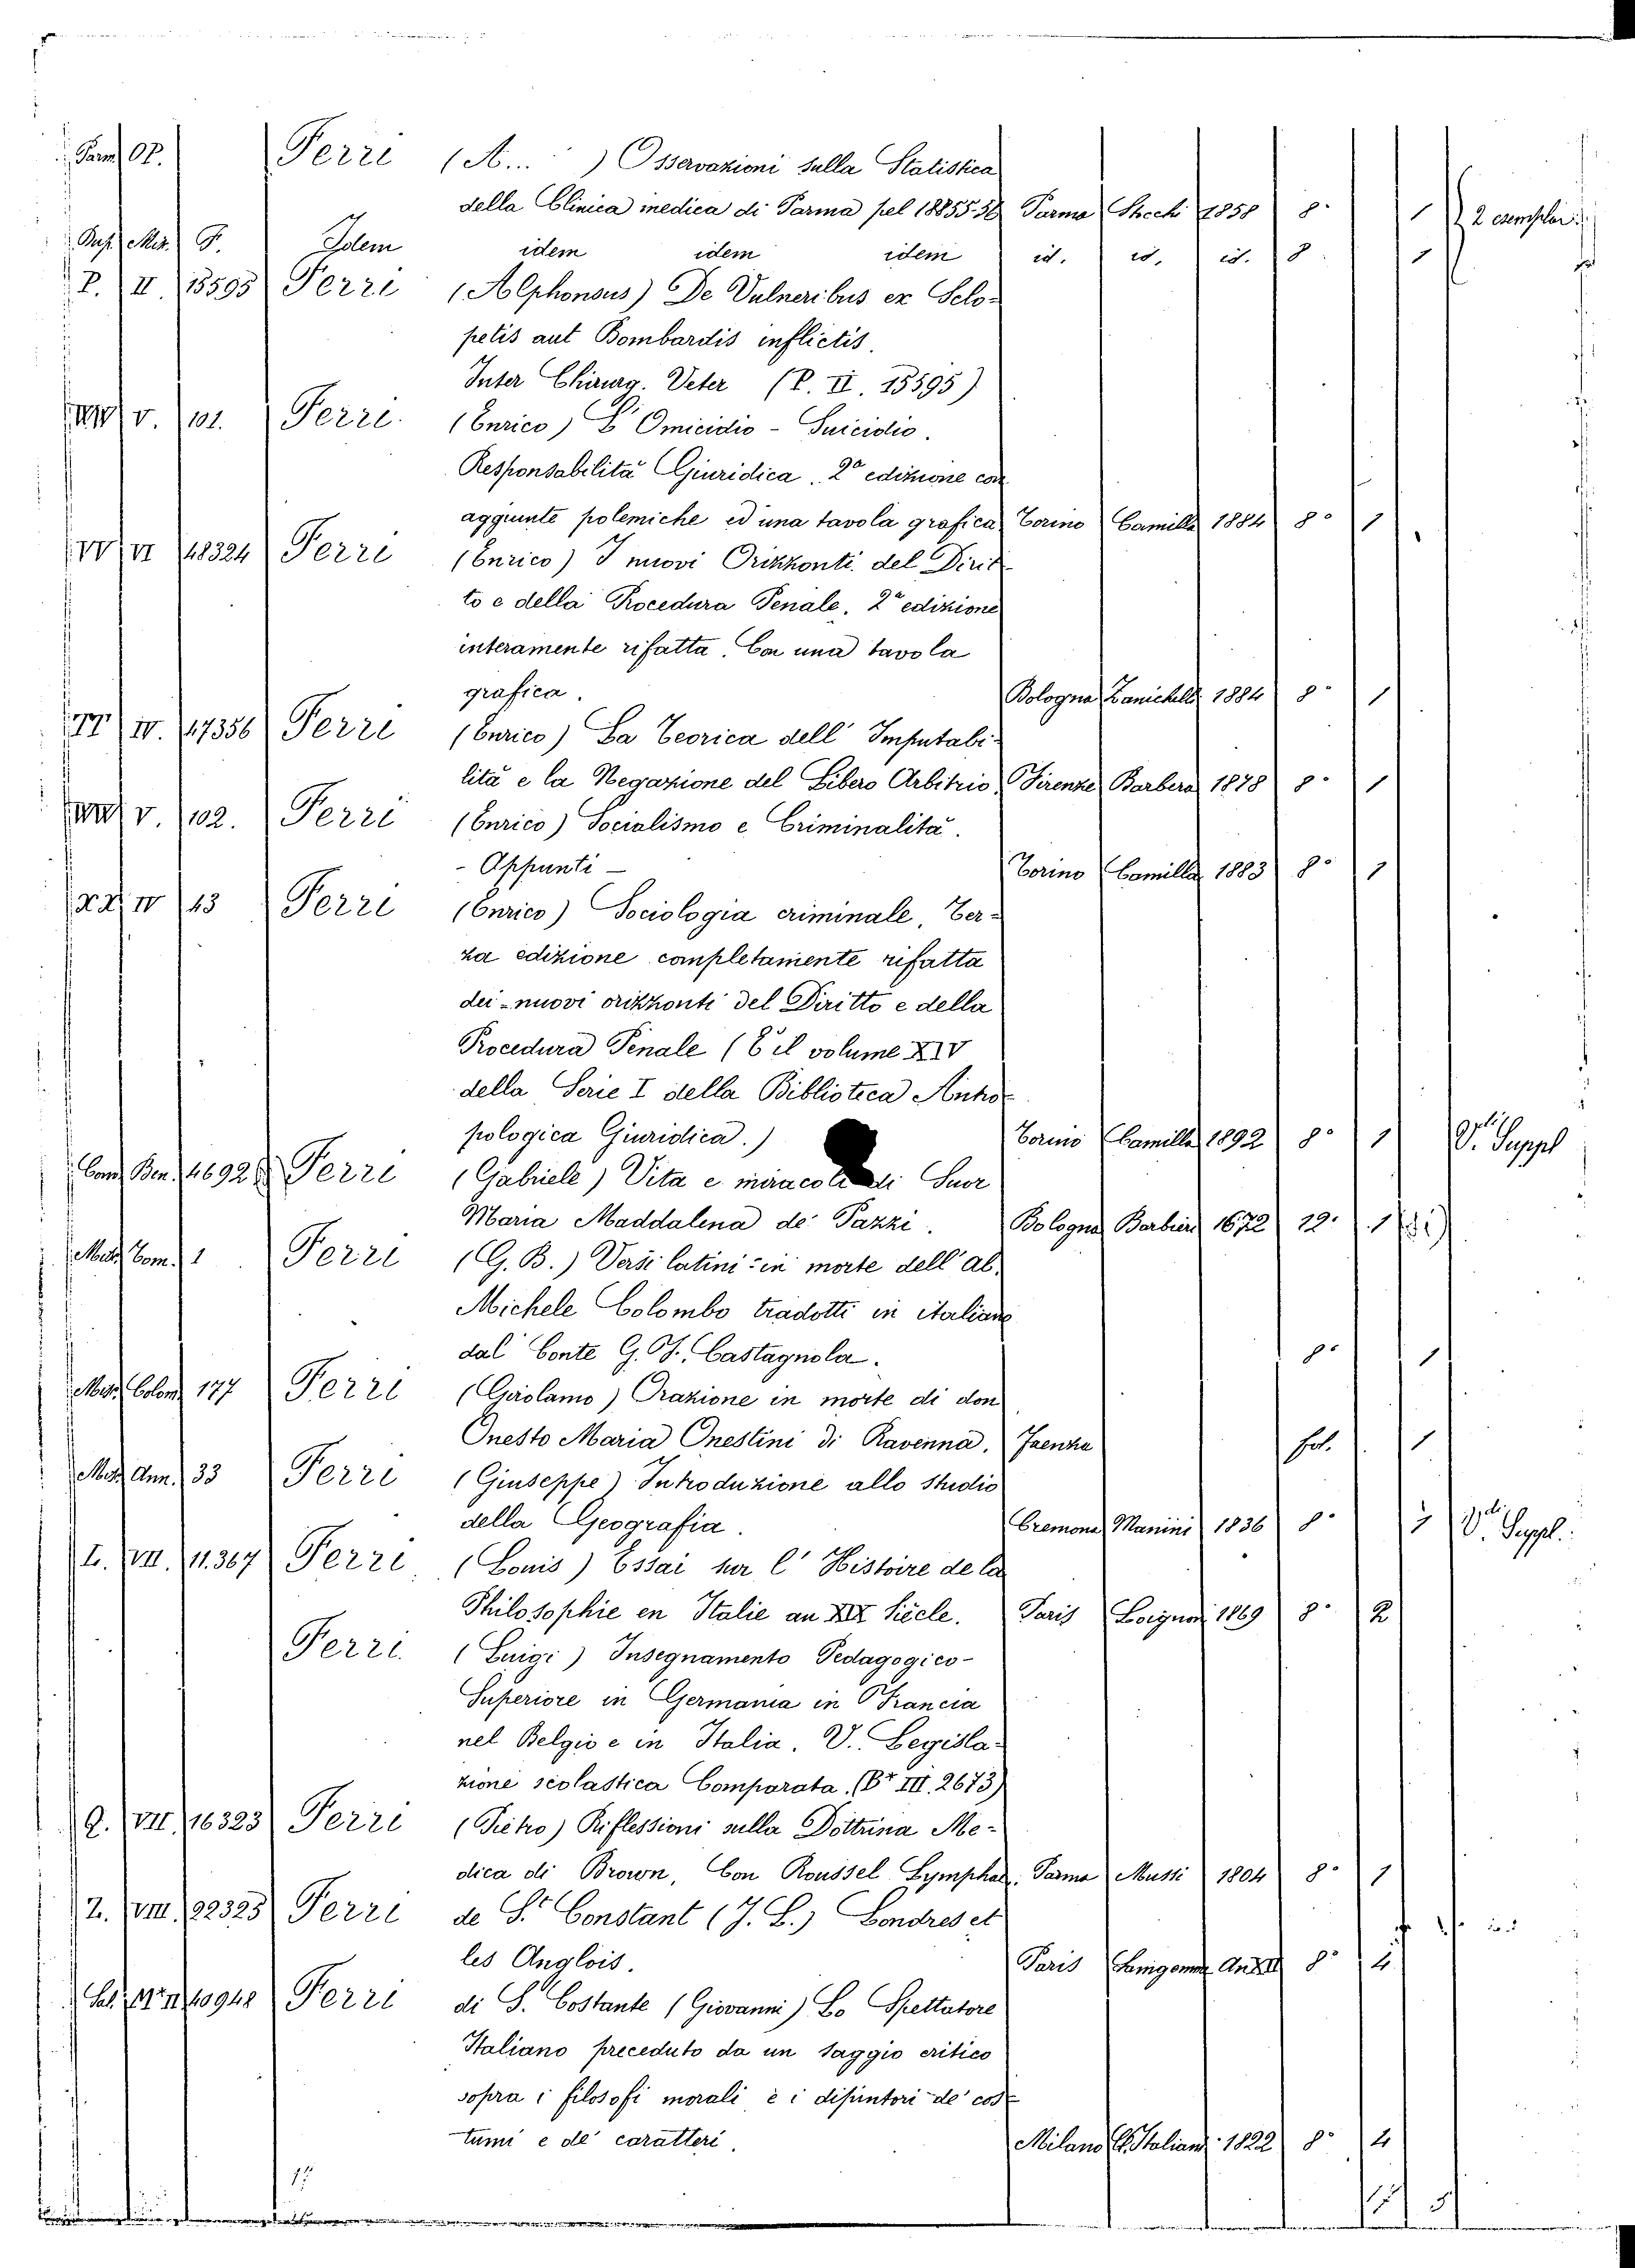 Parm. OP. Ferri (A... ) Osservazioni sulla Statistica
della Clinica medica di Parma pel 18855-56 Parma 1858 8° 1 2 esemplari
Idem idem idem idem id. id. id. 8 1
P. II. 15595 Ferri (Alphonsus) De Vulneribus ex Sclo-
petis aut Bombardis inflictis.
Inter Chirurg. Veter (P. II. 15595)
V. 101. Ferri. (Enrico) L'Omicidio - Suicidio.
Responsabilità Giuridica. 2ª edizione con
aggiunte polemiche ed una tavola grafica Torino Camilla 1884 8° 1
VI 48324 Ferri (Enrico) I nuovi Orizzonti del Dirit-
to e della Procedura Penale. 2ª edizione
interamente rifatta. Con una tavola
grafica. Bologna Zanichelli 1884 8° 1
IV. 47356 Ferri (Enrico) La Teorica dell' Imputabi-
lità e la Negazione del Libero Arbitrio Firenze Barbera 1878 8° 1
V. 102. Ferri (Enrico) Socialismo e Criminalità.
- Appunti - Torino Camilla 1883 8° 1
XX IV 43 Ferri (Enrico) Sociologia criminale, Ter-
za edizione completamente rifatta
dei - nuovi orizzonti del Diritto e della
Procedura Penale (È il volume XIV
della Serie I della Biblioteca Antro-
pologica Giuridica.) Torino Camilla 1892 8° 1 V. Suppl
Ferri (Gabriele) Vita e miracoli di Suor
Maria Maddalena de' Pazzi. Bologna Barbieri 1672 12° 1
1 Ferri (G. B.) Versi latini in morte dell' ab.
Michele Colombo tradotti in italiano
dal Conte G. F. Castagnola. 8° 1
Misc. Colom. 177 Ferri (Girolamo) Orazione in morte di don
Onesto Maria Onestini di Ravenna. Faenza fol. 1
33 Ferri (Giuseppe) Introduzione allo studio
della Geografia. Cremona Manini 1836 8° 1 V. Suppl.
L. VII. 11.367 Ferri (Louis) Essai sur l' Histoire de la
Philosophie en Italie au XIX Siècle. Paris 1869 8° 2
Ferri. (Luigi) Insegnamento Pedagogico-
Superiore in Germania in Francia
nel Belgio e in Italia. V. Legisla-
zione scolastica Comparata. (Br III. 2673)
Q. VII. 16323 Ferri (Pietro) Riflessioni sulla Dottrina Me-
dica di Brown, Con Roussel Lymphat. Parma Mussi 1804 8° 1
Z. VIII. 22325 Ferri de St Constant (J. L.) Londres et
les Anglois. Paris An XII 8° 4
40948 Ferri di S. Costante (Giovanni) Lo Spettatore
Italiano preceduto da un saggio critico
sopra i filosofi morali e i dipintori de' cos-
tumi e de' caratteri. Milano 1822 8° 4